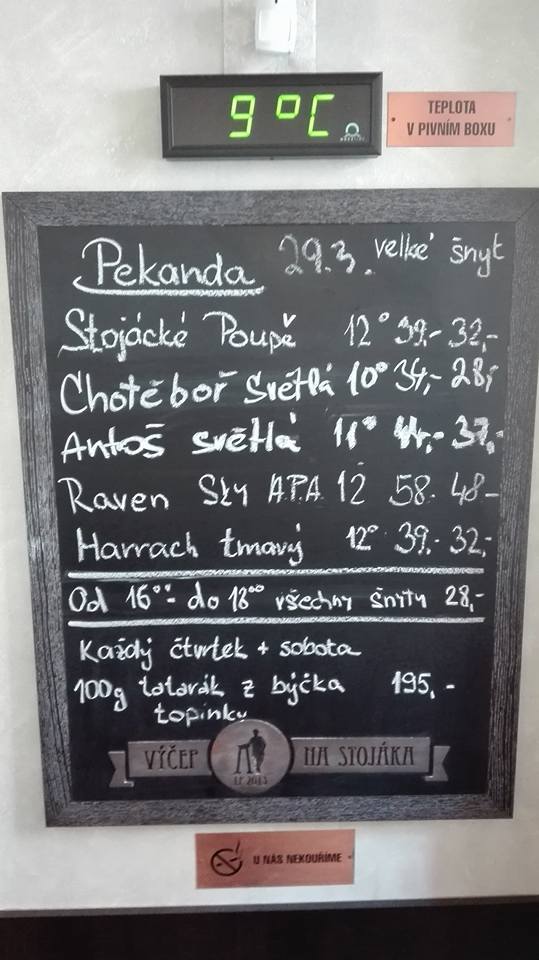 9°C
TEPLOTA
V PIVNÍM BOXU
Pekanda 29.3. velké šnyt
Stojácké Poupě 12° 39.- 32,-
Chotěboř Světlá 10° 34,- 28,-
Antoš světlá 11° 44,- 37,-
Raven Sky APA 12 58. 48-
Harrach tmavý 12° 39.- 32,-
Od 16°°- do 18°° všechny šnyty 28,-
Každý čtvrtek + sobota
100g tatarák z býčka 195,-
topinky
VÝČEP NA STOJÁKA
LP 2013
U NÁS NEKOUŘÍME